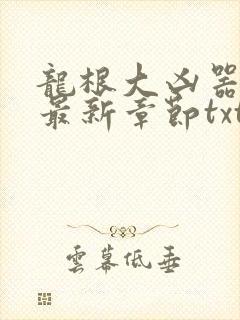 龍根大凶器
最新章節txt
雲幕低垂